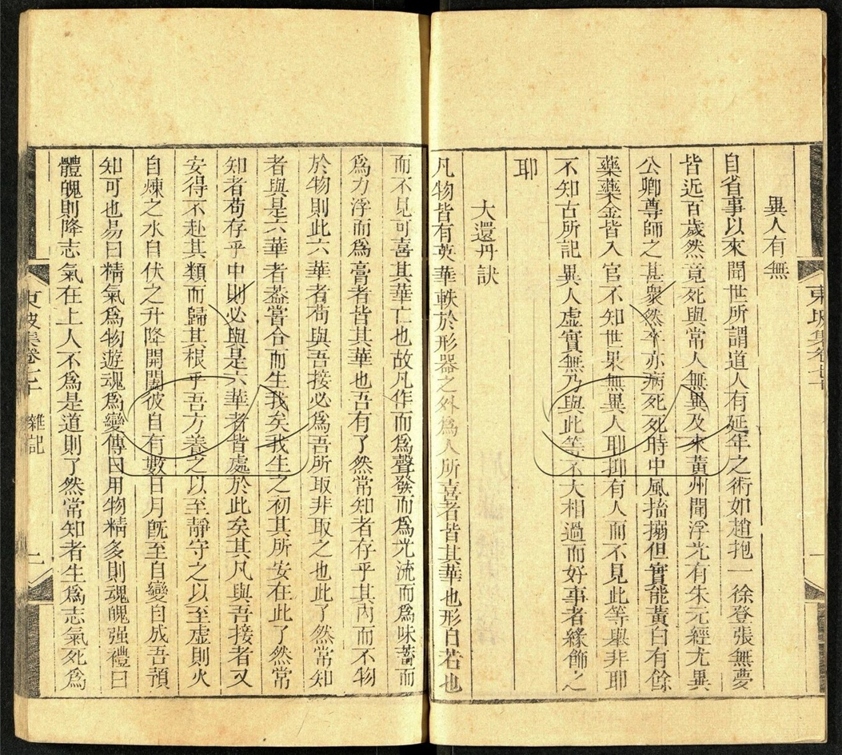 異人有無
自省事以來聞世所謂道人有延年之術如趙抱一徐登張無夢
皆近百歲然竟死與常人無異及來黃州聞浮光有朱元經尤異
公卿尊師之甚衆然卒亦病死死時中風搐搦但實能黃白有餘
藥藥金皆入官不知世果無異人耶抑有人而不見此等舉非耶
不知古所記異人虛實無乃與此等不大相過而好事者緣飾之
耶
大還丹訣
凡物皆有英華軼於形器之外爲人所喜者皆其華也形自若也
而不見可喜其華亡也故凡作而爲聲發而爲光流而爲味蓄而
爲力浮而爲膏者皆其華也吾有了然常知者存乎其內而不物
於物則此六華者苟與吾接必爲吾所取非取之也此了然常知
者與是六華者葢嘗合而生我矣我生之初其所安在此了然常
知者苟存乎中則必與是六華者皆處於此矣其凡與吾接者又
安得不赴其類而歸其根乎吾方養之以至靜守之以至虛則火
自煉之水自伏之升降開闔彼自有數日月旣至自變自成吾預
知可也易曰精氣爲物遊魂爲變傳曰用物精多則魂魄强禮曰
體魄則降志氣在上人不爲是道則了然常知者生爲志氣死爲
東坡集卷七十 雜記 一